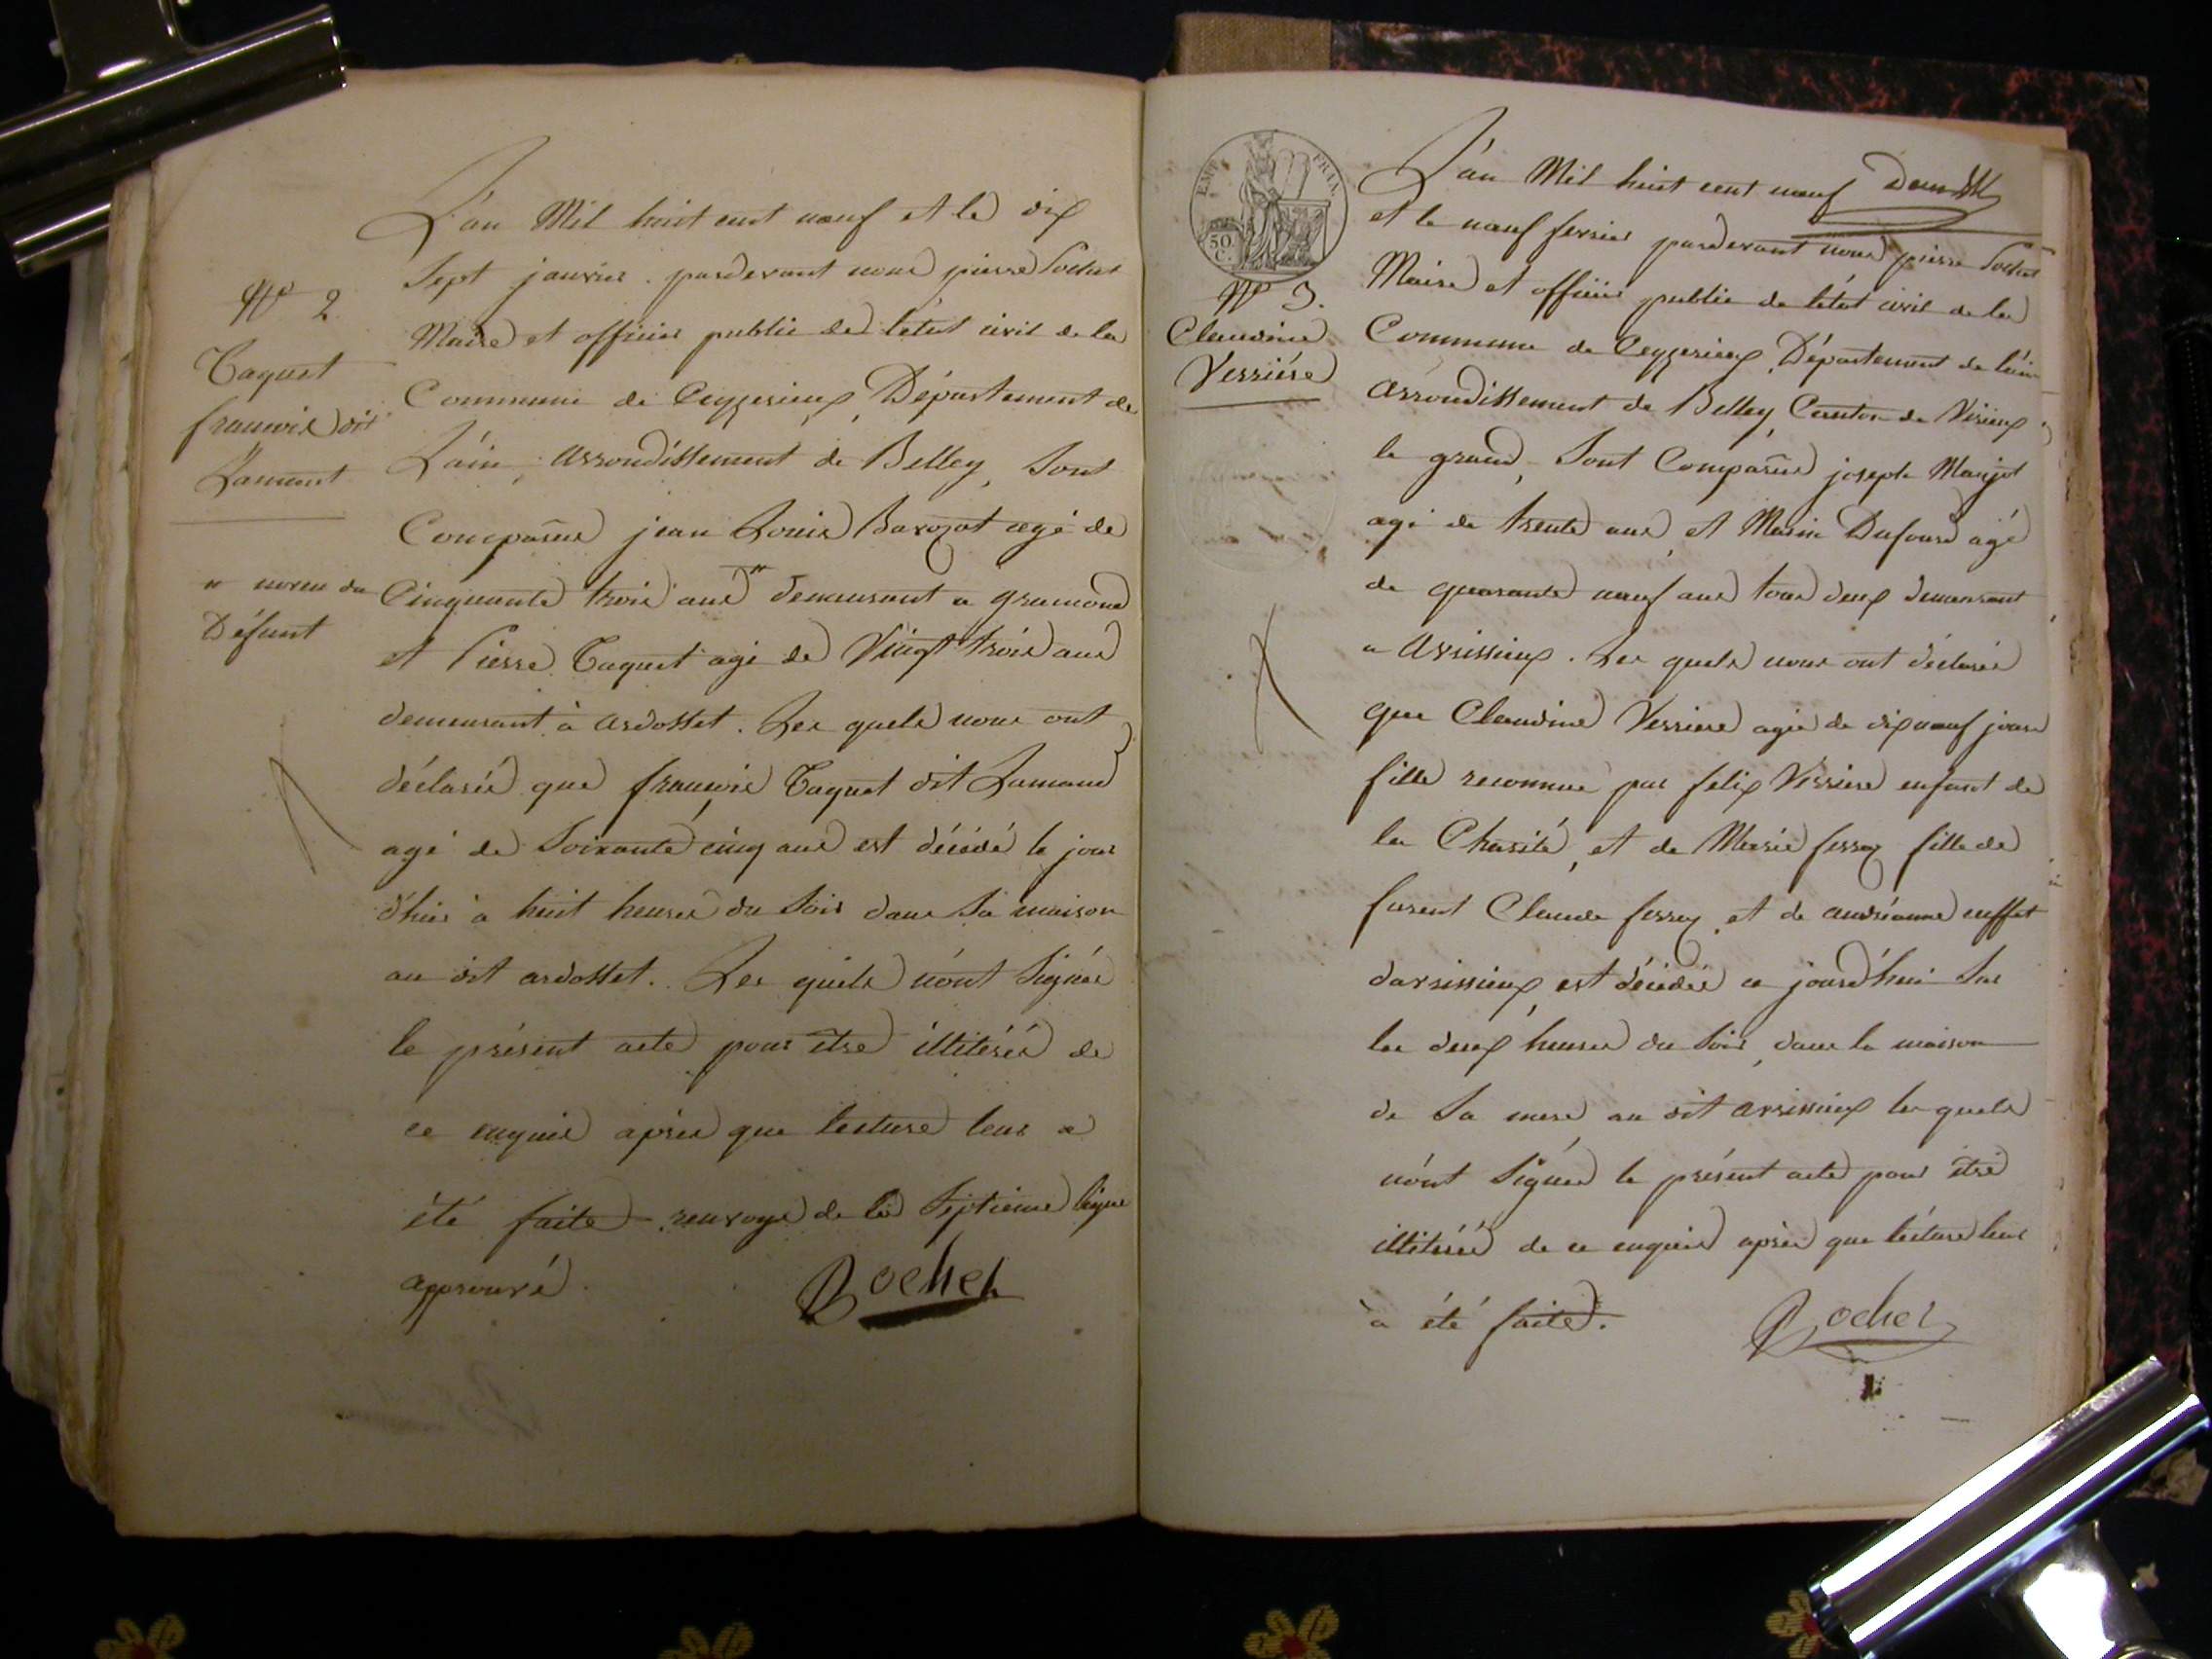 L'an Mil huit cent neuf et le dix
Sept janvier. pardevant nous pierre Rochet
N° 2
Maire et officier public de l'état civil de la
Taquet
françois dit
Lamant
Commune de Ceyzerieux, Département de
L'ain, arrondissement de Belley, Sont
Comparus jean Louis Barozat agé de
" neveu du
Défunt
Cinquante trois ans " demeurant a gramond
et Pierre Taquet agé de Vingt trois ans
demeurant à ardosset. Les quels nous ont
déclarés que françois Taquet dit Lamand
agé de Soixante cinq ans est décédé le jour
d'hier à huit heures du Soir dans Sa maison
au dit ardosset. Les quels n'ont Signés
le présent acte pour être illitérés de
ce enquis après que lecture leur a
été faite renvoye de la Septieme ligne
approuvé.
Rochet
EMP. FRIA.
50.
C.
N° 3.
Claudine
Verrière
L'an Mil huit cent neuf
et le neuf fevrier pardevant nous pierre Rochet
Maire et officier public de l'état civil de la
Commune de Ceyzerieux, Département de l'ain
arrondissement de Belley, Canton de Virieux
le grand, Sont Comparus joseph Marjot
agé de trente ans, et Marin Dufour agé
de quarante neuf ans tous deux demeurant
a avrissieux. Les quels nous ont déclarés
que Claudine Verriere agée de dix neuf jours
fille reconnue par felix Verriere enfant de
la Charité, et de Marie ferroz fille de
furent Claude ferroz, et de andréanne cuffet
davrissieux, est décédée ce jourd'hui Sur
les deux heures du Soir, dans la maison
de Sa mere au dit avrissieux les quels
n'ont Signés le présent acte pour être
illitérés de ce enquis après que lécture leur
à été faite.
Rochet